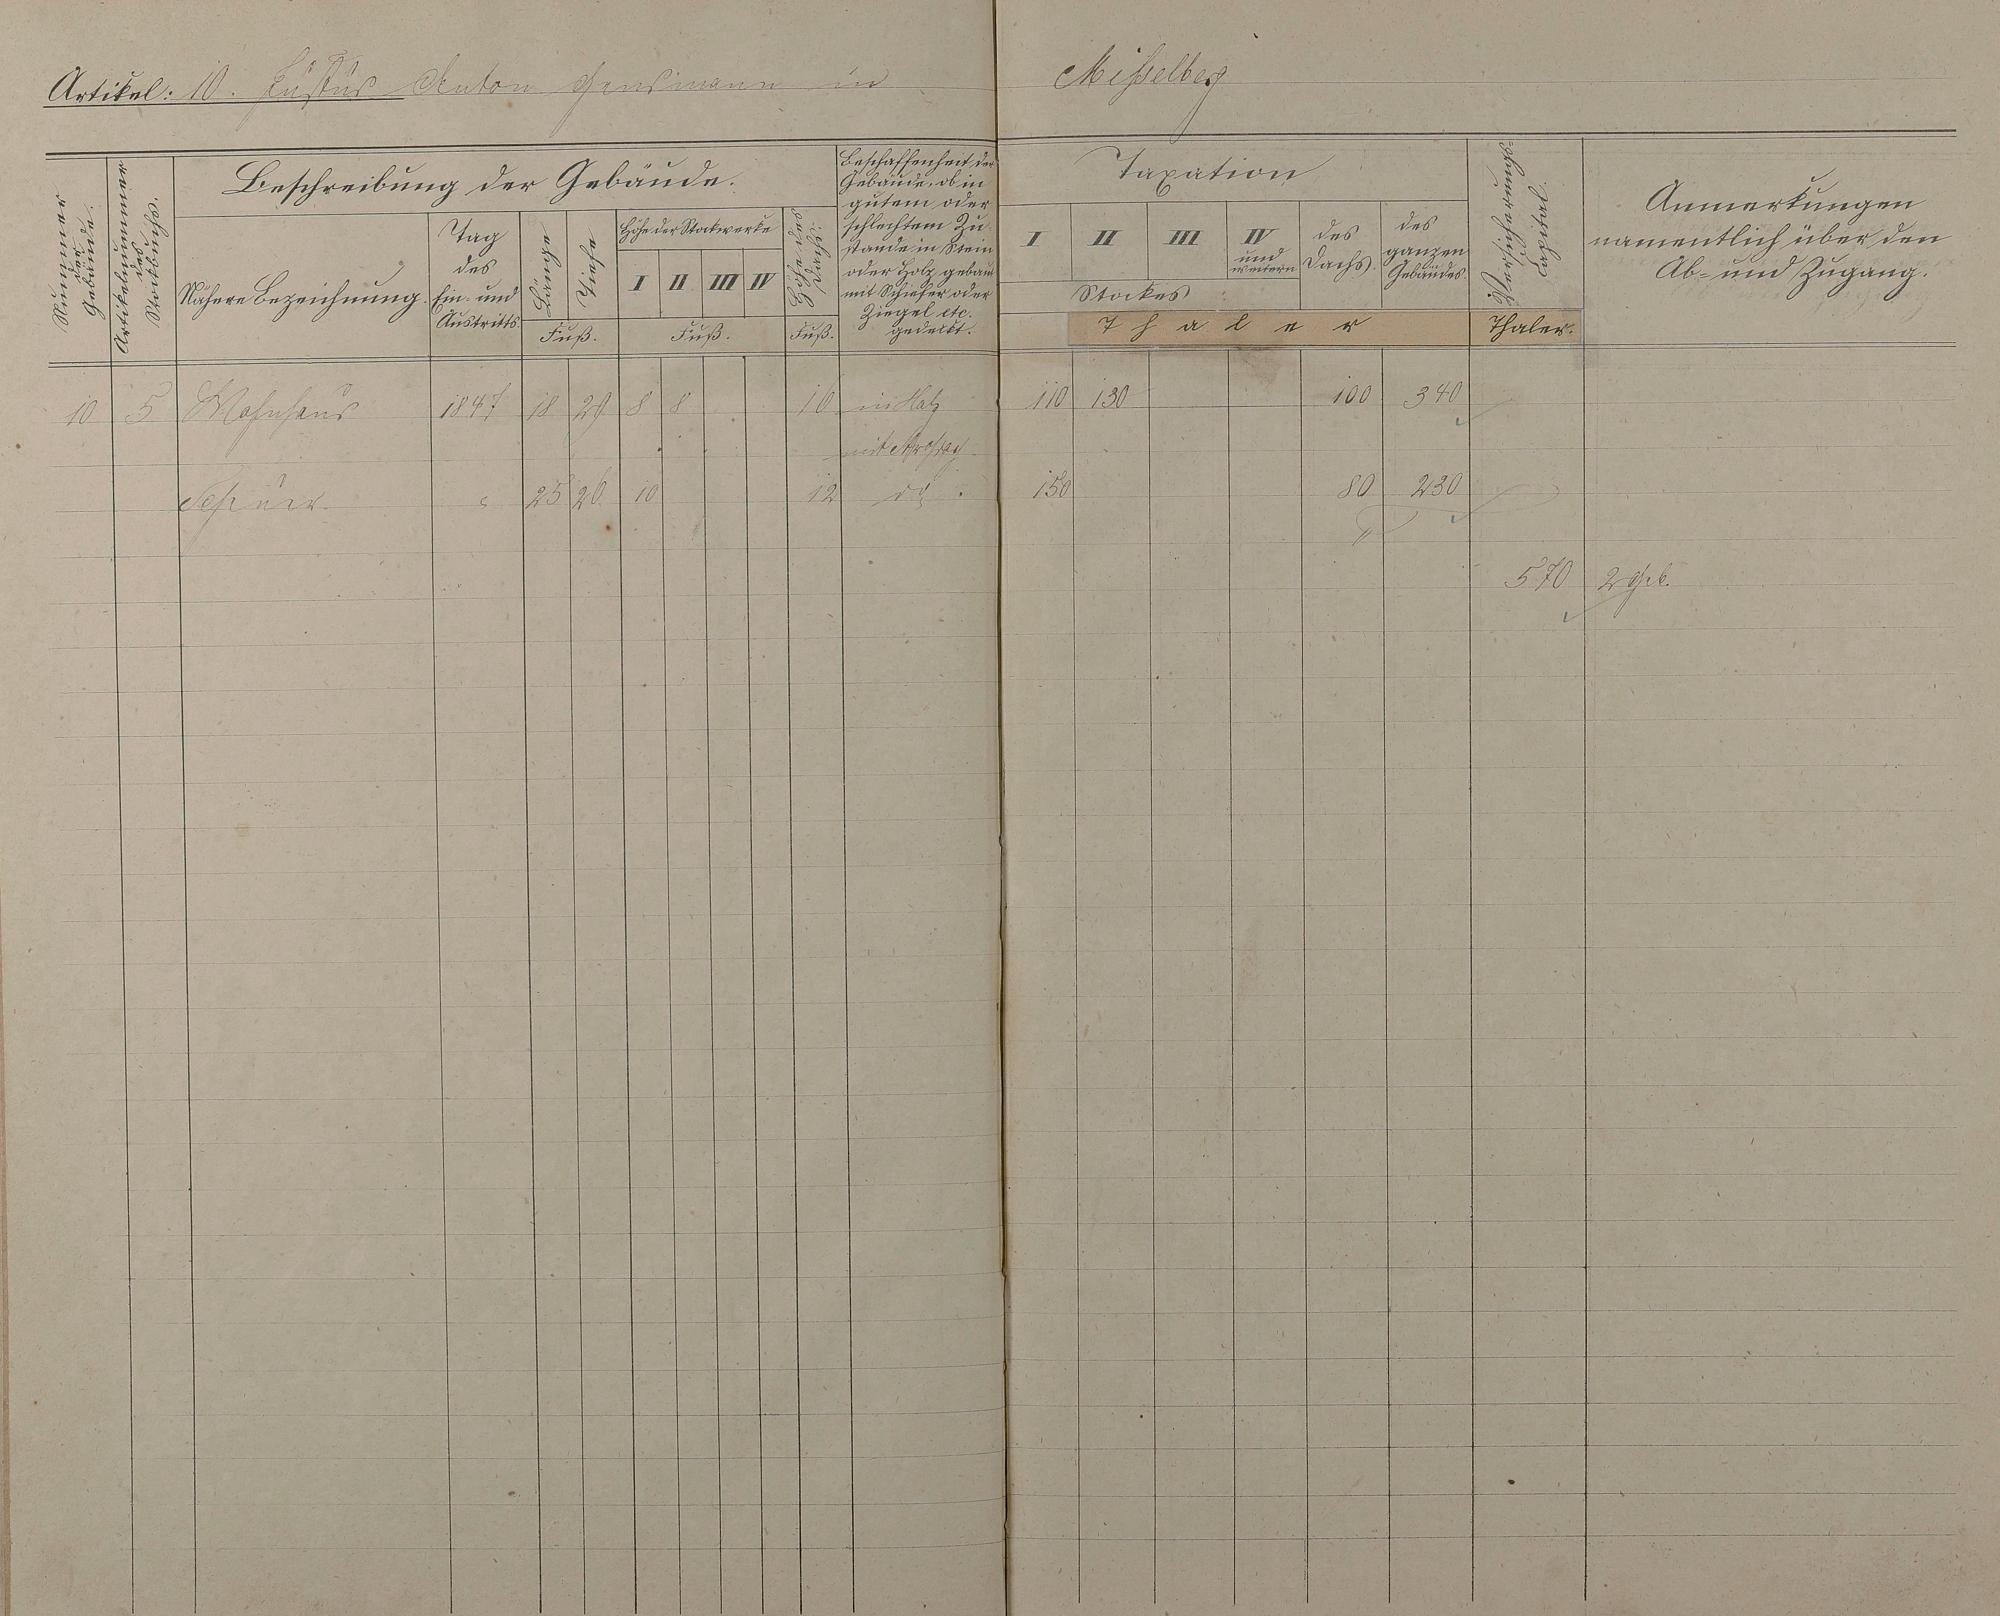 Artikel: 10. Justus Anton in Misselberg
Nummer der Gebäude.
Artikelnummer des Stockbuchs.
Beschreibung der Gebäude.
Nähere Bezeichnung.
Tag des Ein- und Austritts.
Länge
Tiefe
Fuß.
Höhe der Stockwerke
I II III IV
Fuß.
Höhe des Dachs.
Fuß.
Beschaffenheit der
Gebäude, ob in
gutem oder
schlechtem Zu-
stande in Stein
oder Holz gebaut
mit Schiefer oder
Ziegel etc.
gedeckt.
Taxation
I II III IV und weitern
Stockes
des Dachs.
des ganzen Gebäudes.
Thaler
Versicherungs-Capital.
Thaler.
Anmerkungen
namentlich über den
Ab- und Zugang.
10 5 Wohnhaus 1847 18 29 8 8 16 in Holz 110 130 100 340
mit Strohdach
Scheuer " 25 26 10 12 do. 150 80 230
570 2 Geb.